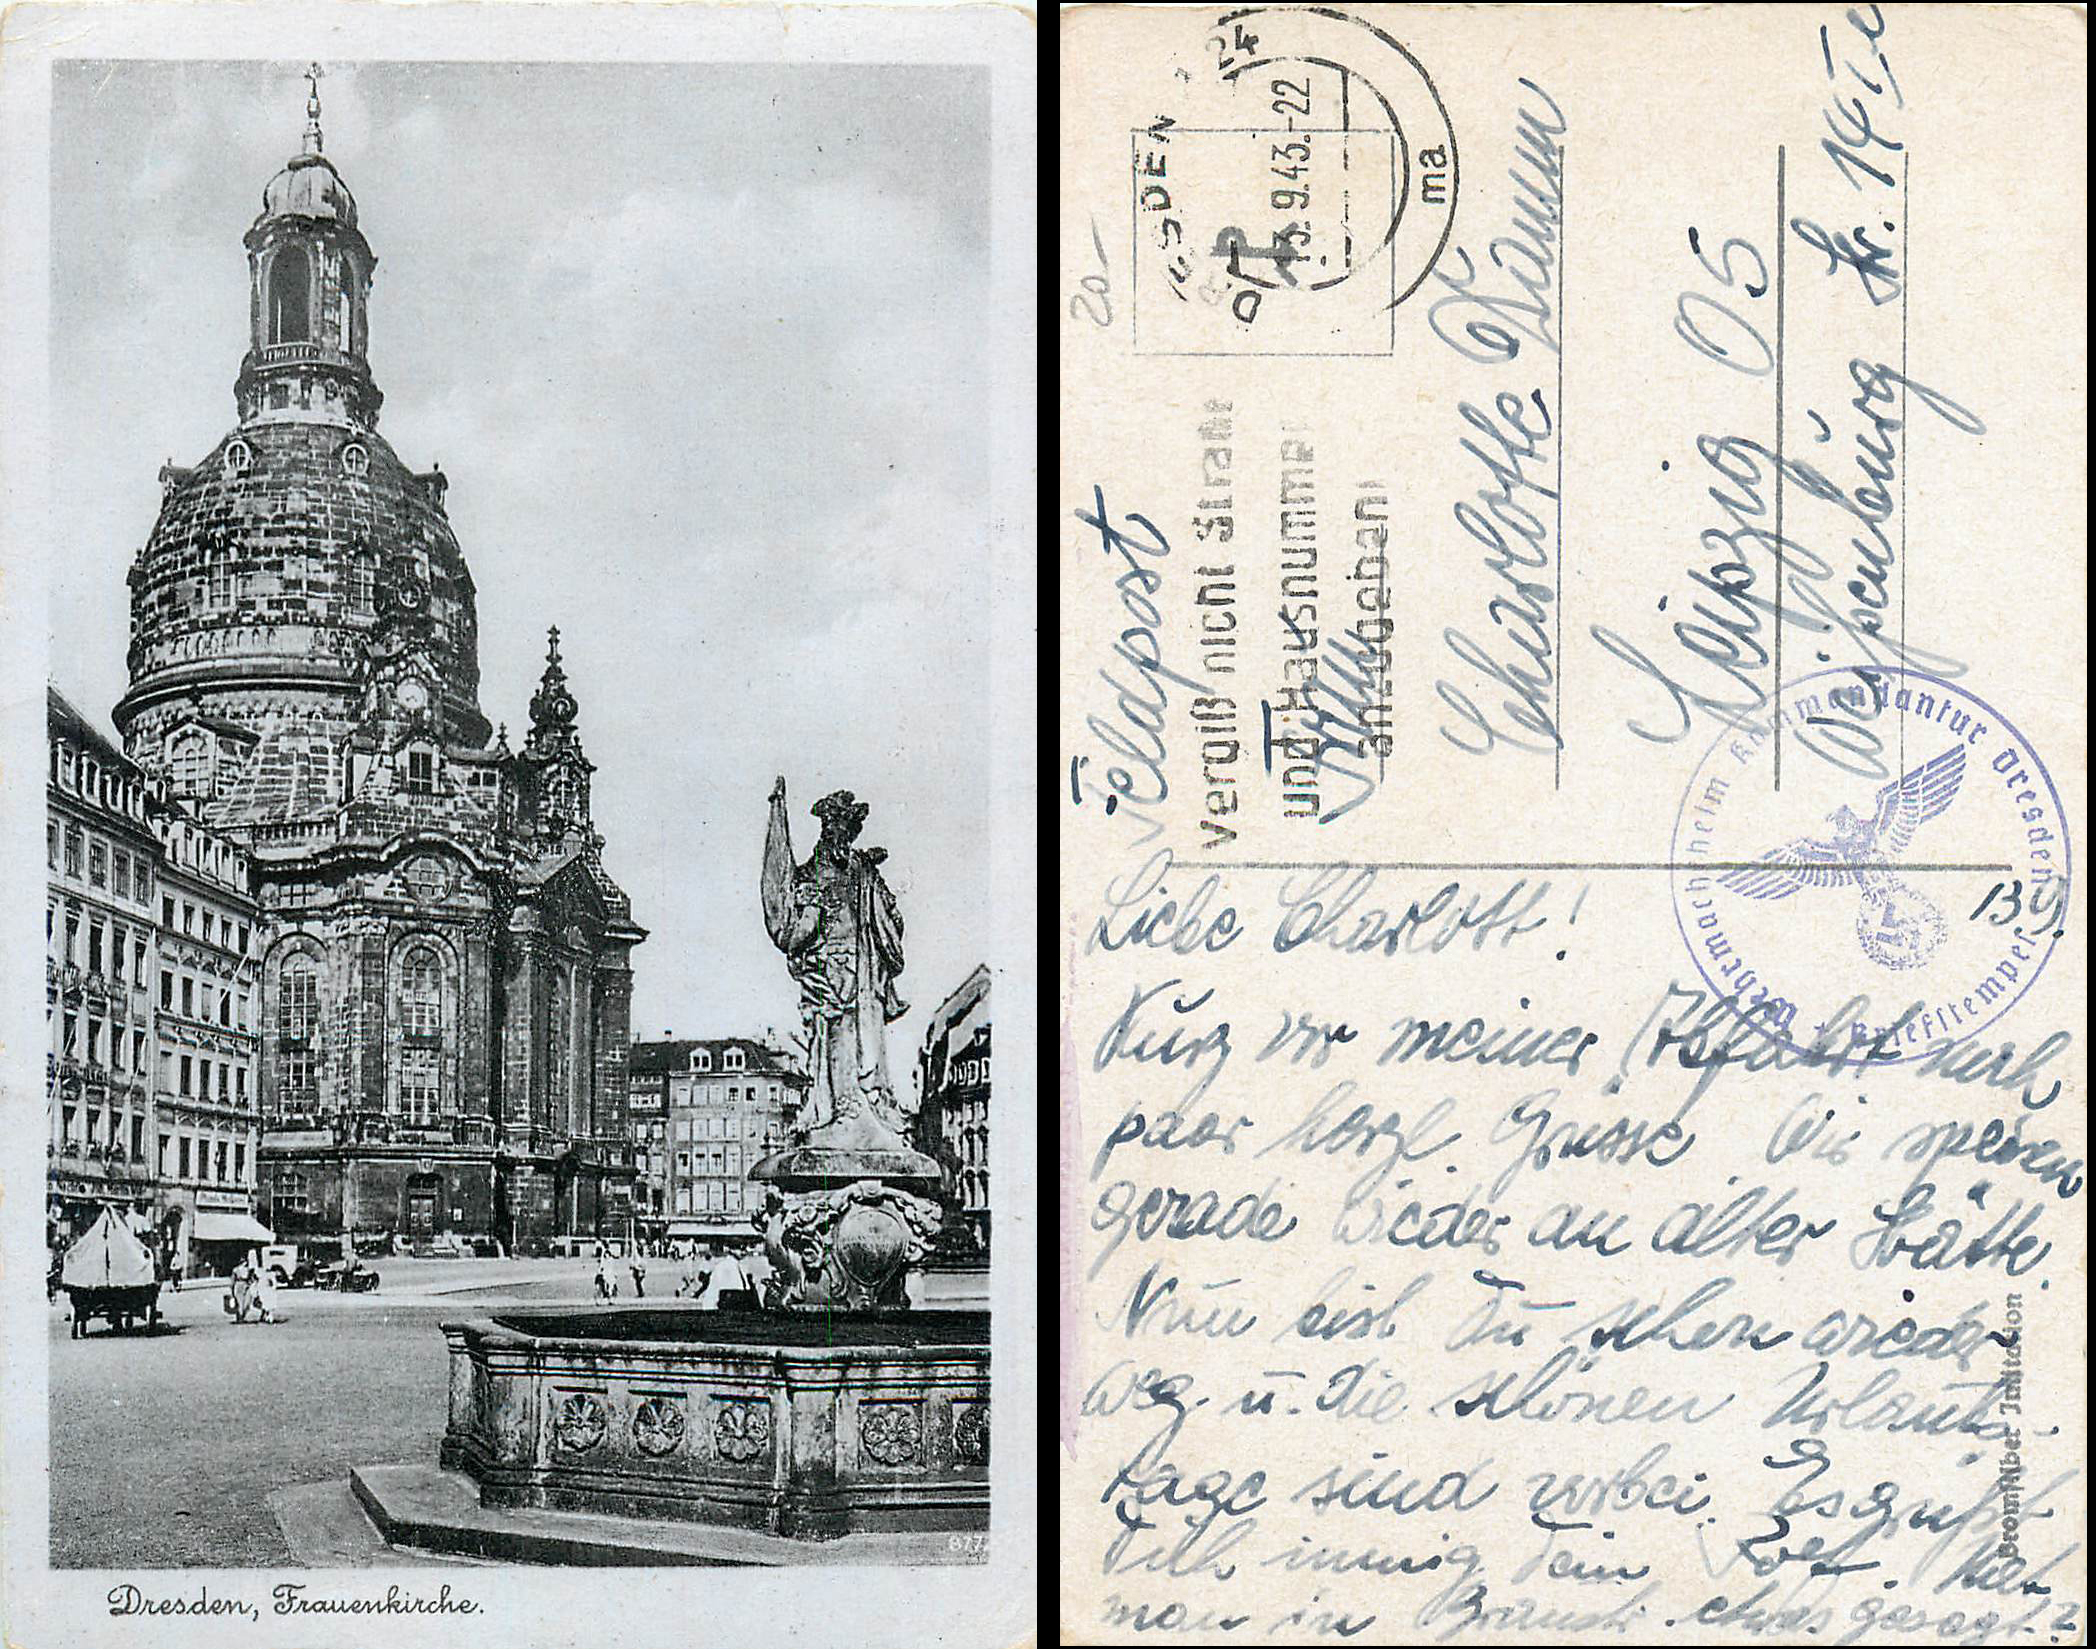 Dresden, Frauenkirche.
877
20-
Feldpost
DRESDEN A 24
13.9.43.-22
ma
Vergiß nicht Straße
und Hausnummer
anzugeben!
Charlotte Damm
Leipzig O5
Str. 14
Wehrmachtheim Kommandantur Dresden
Briefstempel
13.9.
Liebe Charlott!
Kurz vor meiner Abfahrt noch
paar herzl. Grüsse. Wir speisen
gerade wieder an alter Stätte.
Nun bist Du schon wieder
weg u. die schönen Urlaubs-
tage sind vorbei. Es grüßt
Dich innig Dein Hat
man in etwas gesagt?
Bromsilber Imitation